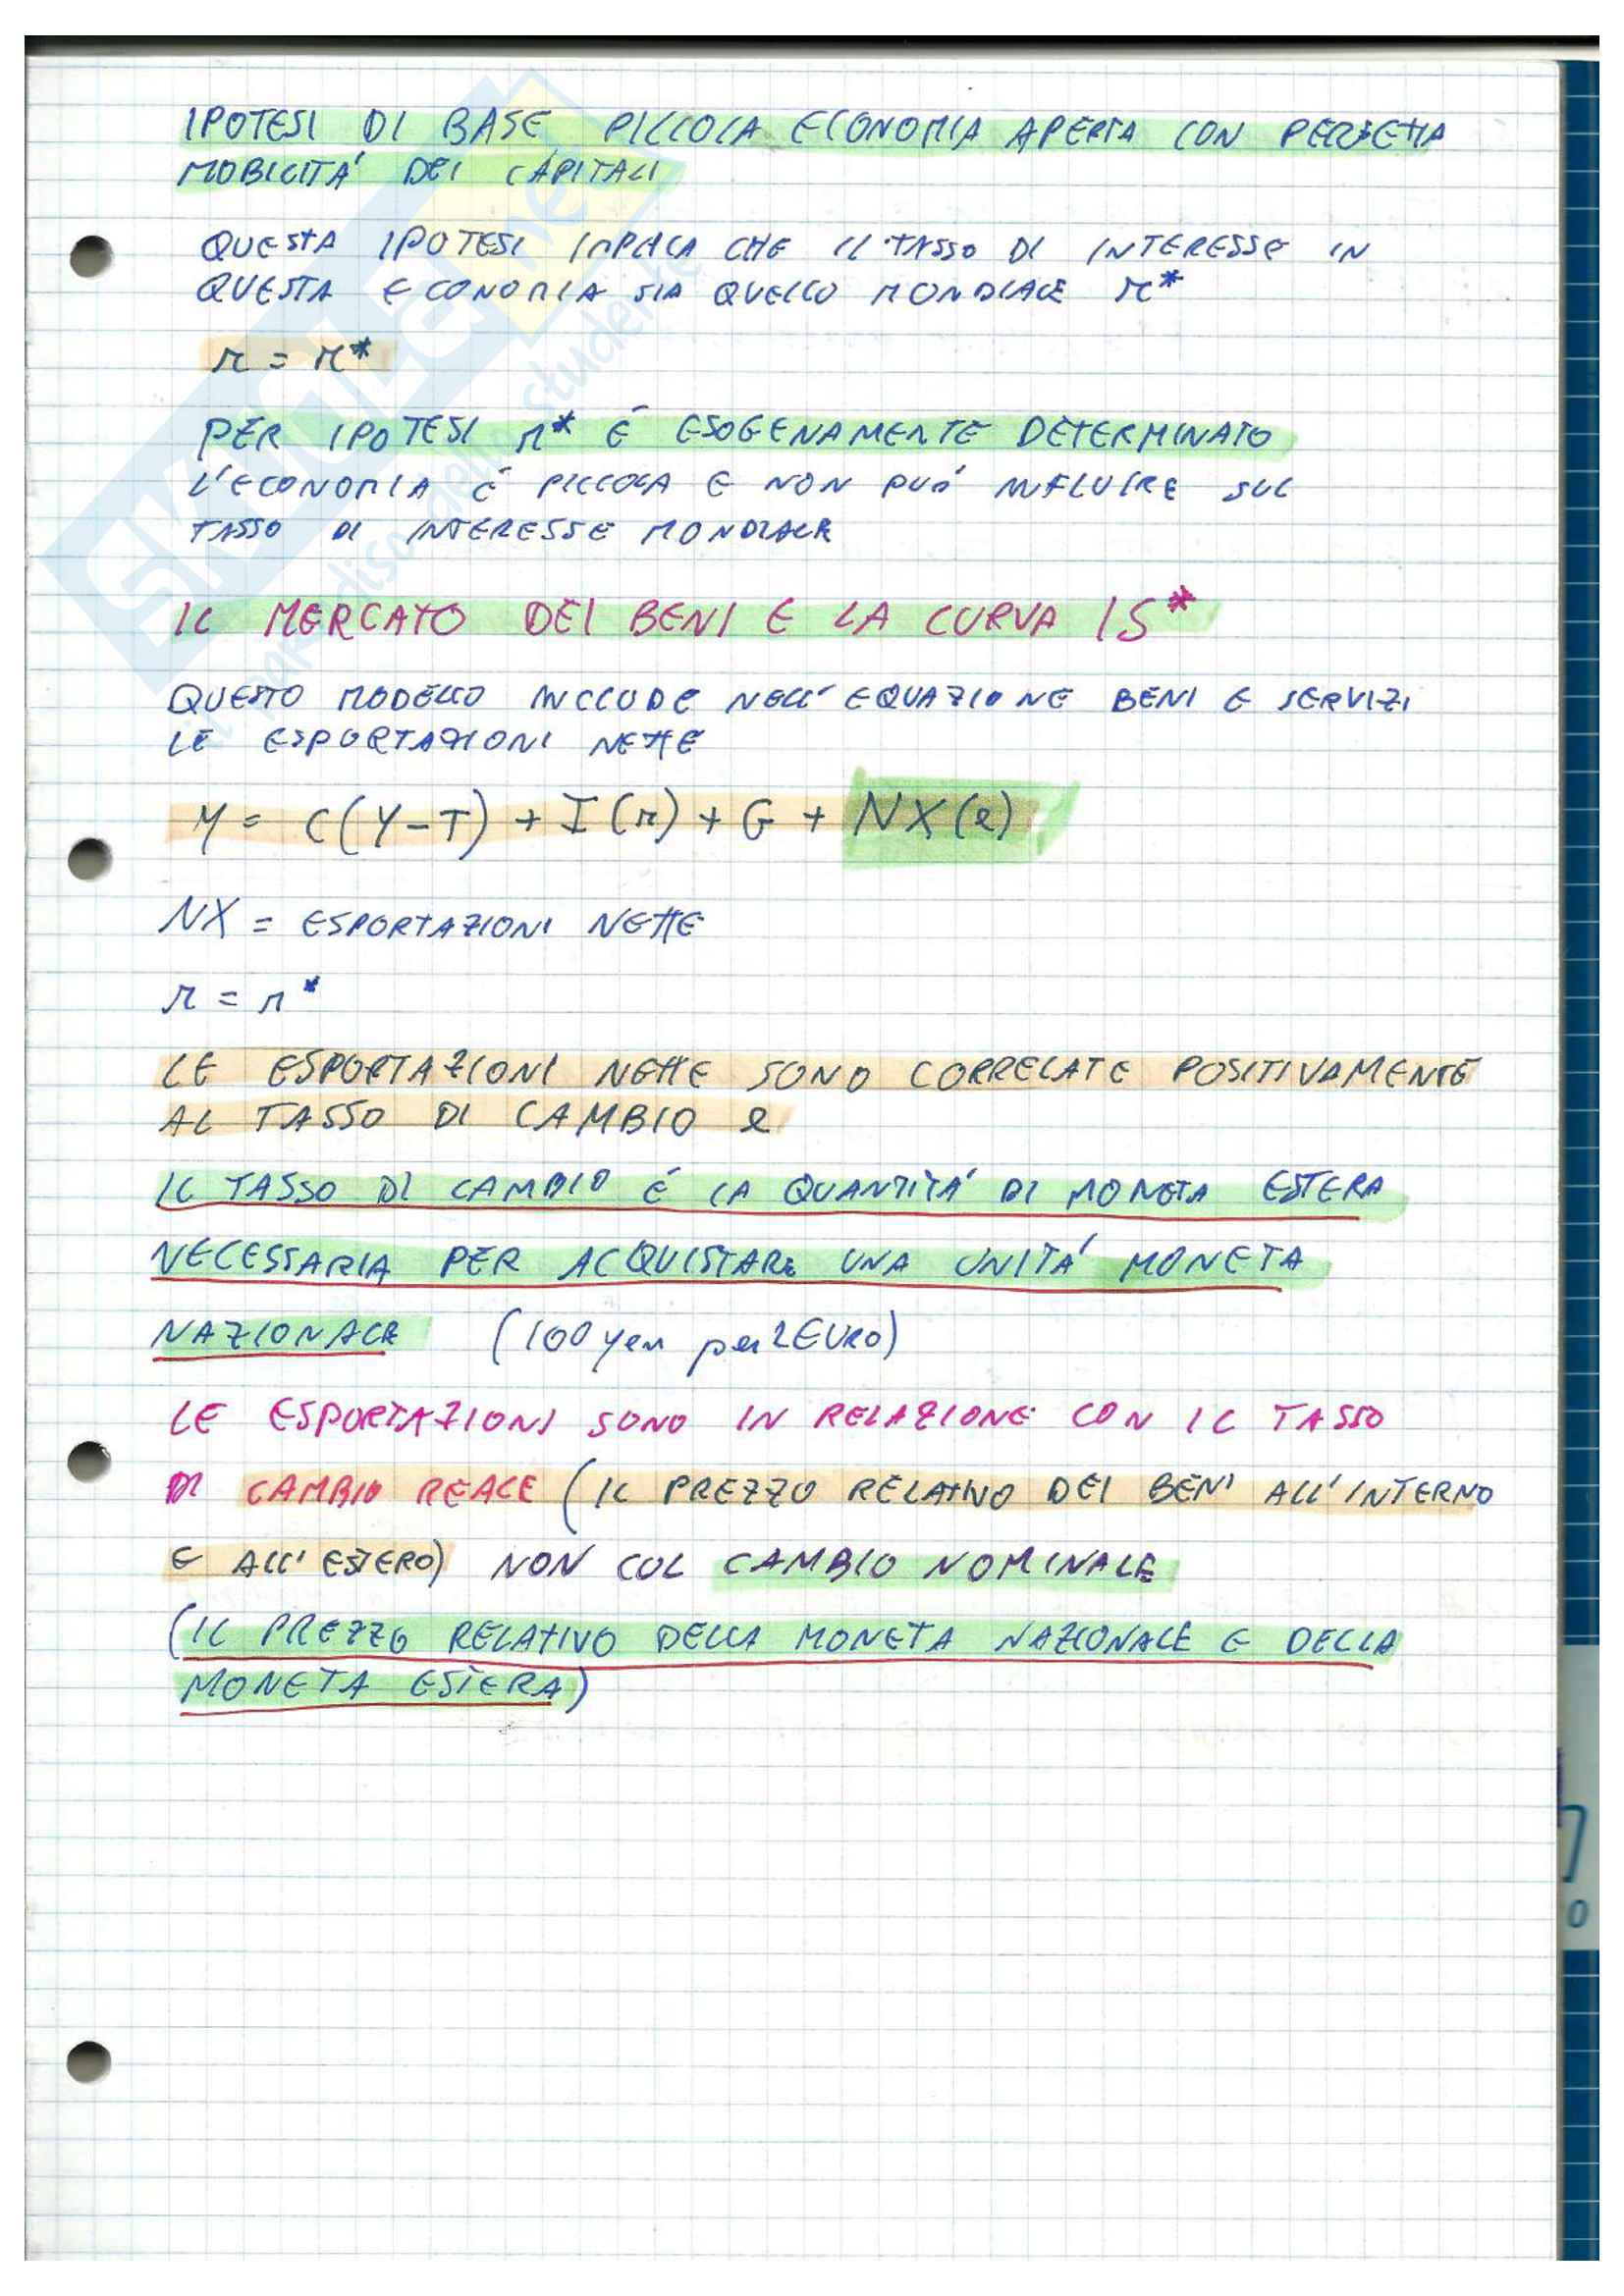 IPOTESI DI BASE PICCOLA ECONOMIA APERTA CON PERFETTA
MOBILITÀ DEI CAPITALI
QUESTA IPOTESI IMPLICA CHE IL TASSO DI INTERESSE IN
QUESTA ECONOMIA SIA QUELLO MONDIALE r*
r = r*
PER IPOTESI r* É ESOGENAMENTE DETERMINATO
L'ECONOMIA É PICCOLA E NON PUÓ INFLUIRE SUL
TASSO DI INTERESSE MONDIALE
IL MERCATO DEI BENI E LA CURVA IS*
QUESTO MODELLO INCLUDE NELL'EQUAZIONE BENI E SERVIZI
LE ESPORTAZIONI NETTE
Y = C(Y-T) + I(r) + G + NX(e)
NX = ESPORTAZIONI NETTE
r = r*
LE ESPORTAZIONI NETTE SONO CORRELATE POSITIVAMENTE
AL TASSO DI CAMBIO e
IL TASSO DI CAMBIO É LA QUANTITÁ DI MONETA ESTERA
NECESSARIA PER ACQUISTARE UNA UNITÁ MONETA
NAZIONALE (100 yen per 1 EURO)
LE ESPORTAZIONI SONO IN RELAZIONE CON IL TASSO
DI CAMBIO REALE (IL PREZZO RELATIVO DEI BENI ALL'INTERNO
E ALL'ESTERO) NON COL CAMBIO NOMINALE
(IL PREZZO RELATIVO DELLA MONETA NAZIONALE E DELLA
MONETA ESTERA)